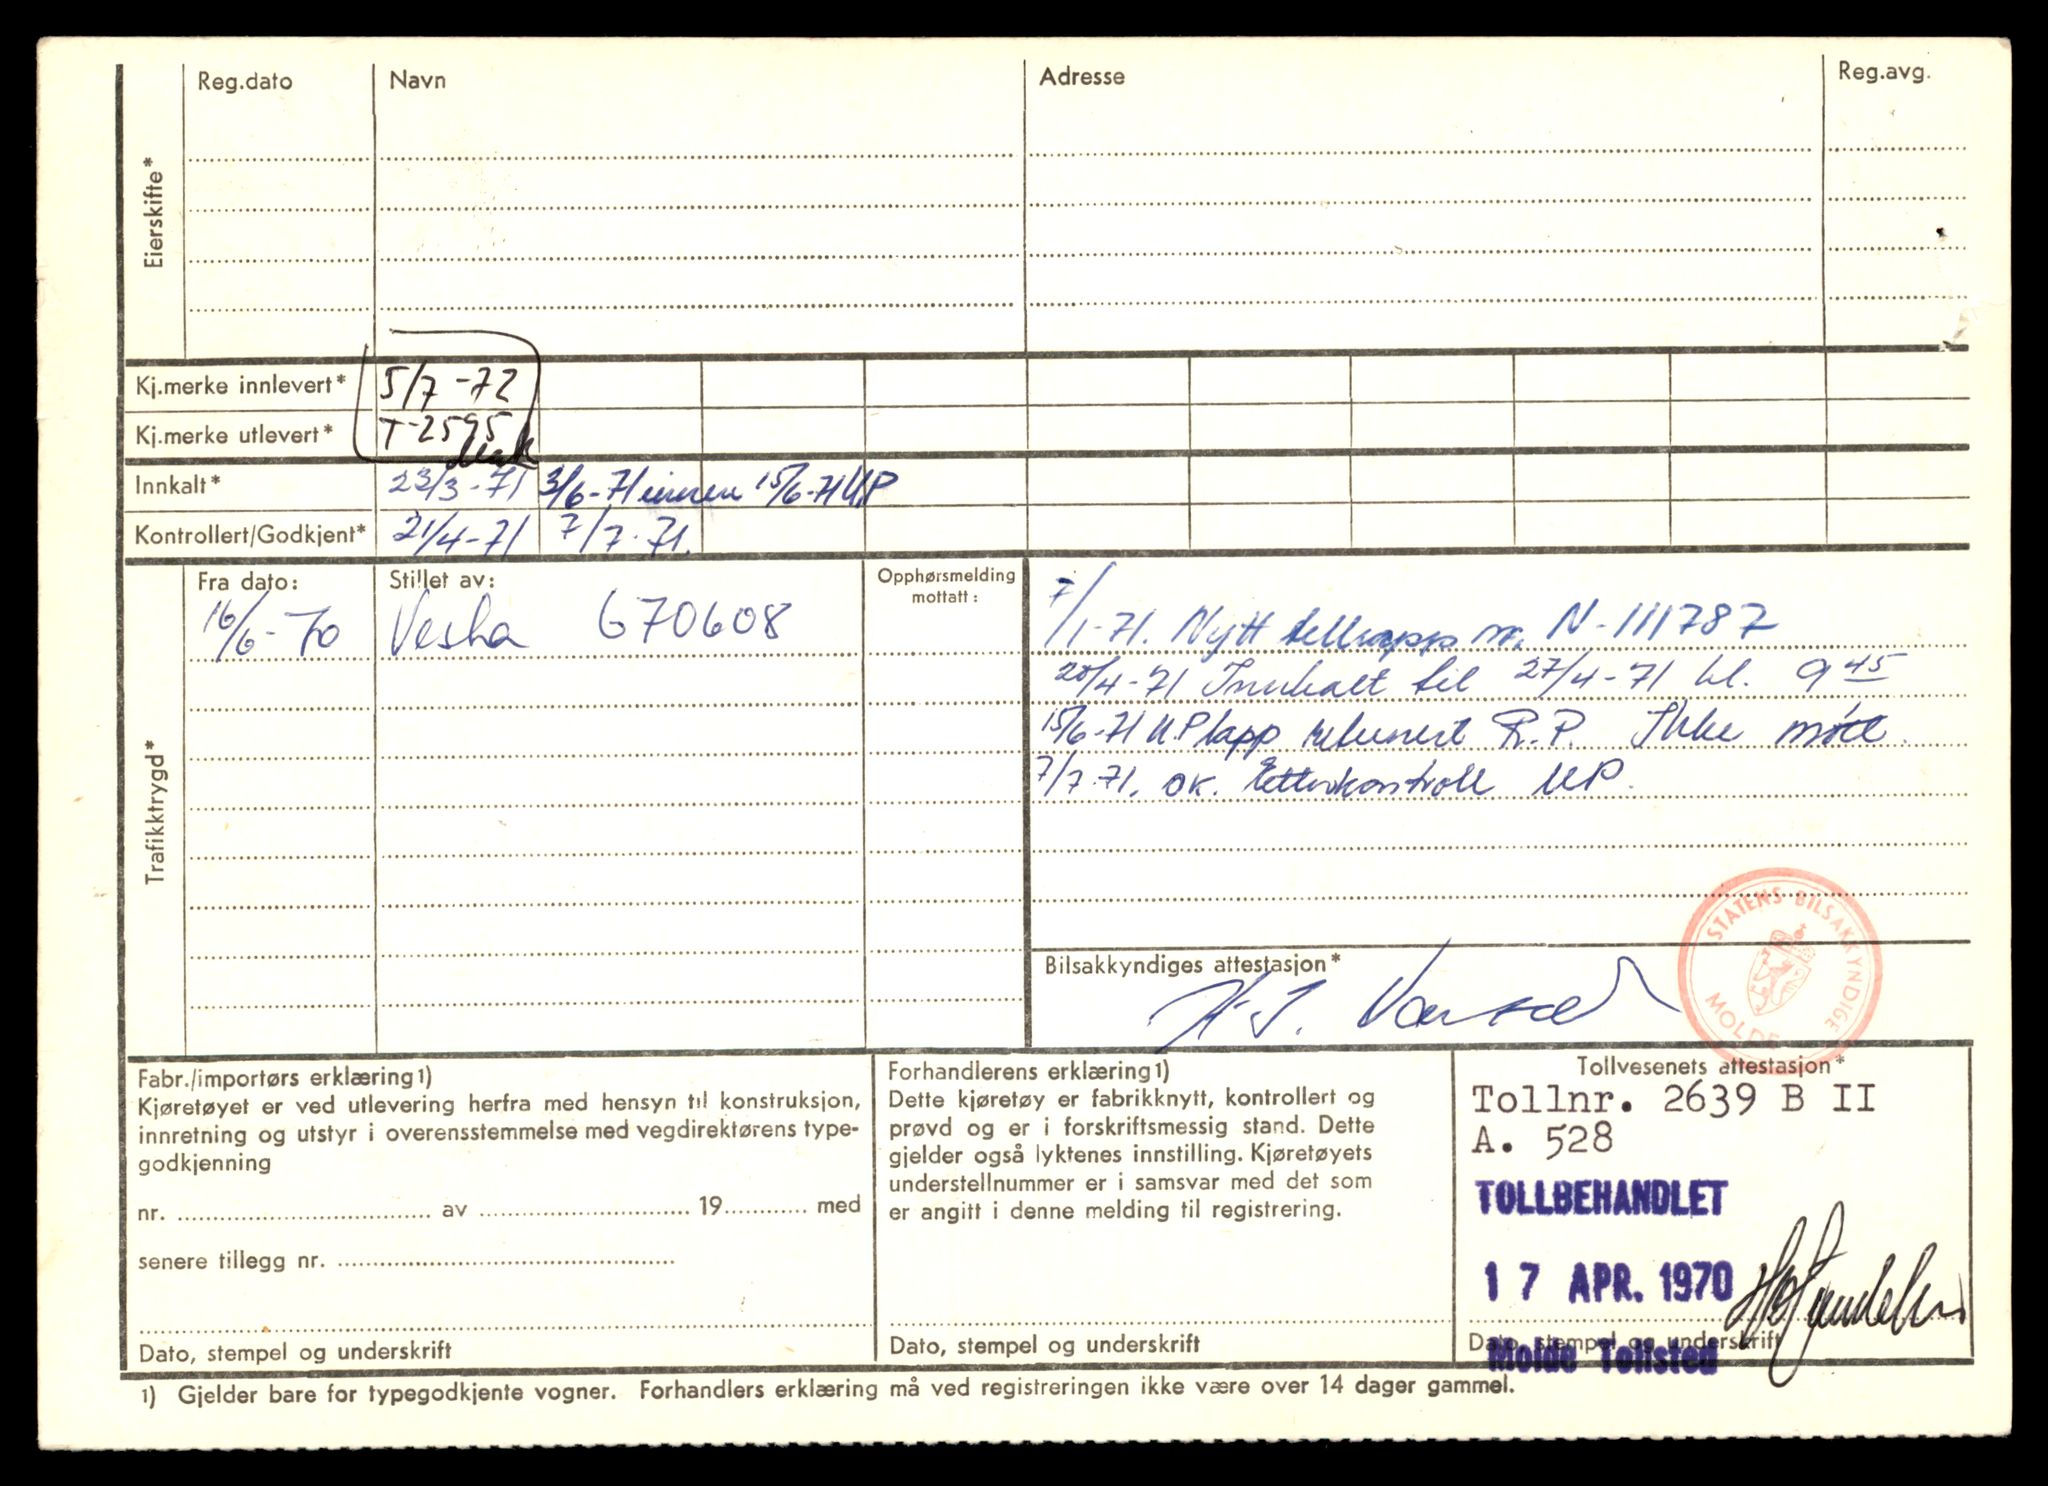 Reg.dato Navn Adresse Reg.avg.
Eierskifte*
Kj.merke innlevert* 5/7-72
Kj.merke utlevert* T-2595
Innkalt* 23/3-71 3/6-71 15/6-71 UP
Kontrollert/Godkjent* 21/4-71 7/7.71.
Trafikktrygd*
Fra dato: Stillet av: Opphørsmelding
mottatt:
16/6-70 Vesta 670608
7/1-71. Nytt nr. N-111787
20/4-71 Innkalt til 27/4-71 kl. 9 45
15/6-71 UP lapp returnert R.P. Ikke møtt.
7/7.71. OK. Etterkontroll UP.
Bilsakkyndiges attestasjon*
STATENS BILSAKKYNDIGE
MOLDE
Fabr./importørs erklæring1)
Kjøretøyet er ved utlevering herfra med hensyn til konstruksjon,
innretning og utstyr i overensstemmelse med vegdirektørens type-
godkjenning
nr. av 19 med
senere tillegg nr.
Dato, stempel og underskrift
Forhandlerens erklæring1)
Dette kjøretøy er fabrikknytt, kontrollert og
prøvd og er i forskriftsmessig stand. Dette
gjelder også lyktenes innstilling. Kjøretøyets
understellnummer er i samsvar med det som
er angitt i denne melding til registrering.
Dato, stempel og underskrift
Tollvesenets attestasjon*
Tollnr. 2639 B II
A. 528
TOLLBEHANDLET
17 APR. 1970
Dato, stempel og underskrift
Molde Tollsted
1) Gjelder bare for typegodkjente vogner. Forhandlers erklæring må ved registreringen ikke være over 14 dager gammel.